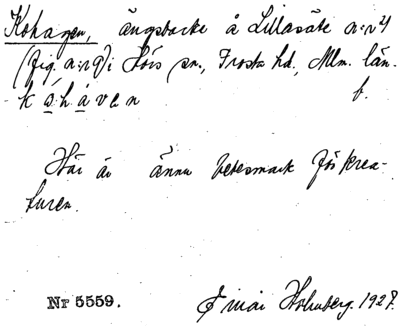 Kohagen, ängsbacke å Lillasäte n:r 24
(fig. n:r 9) i Hörs sn., Frosta hd., Mlm. län.
kóhàven f.
Här är ännu betesmark för krea-
turen.
Nr 5559. Holmberg. 1927.